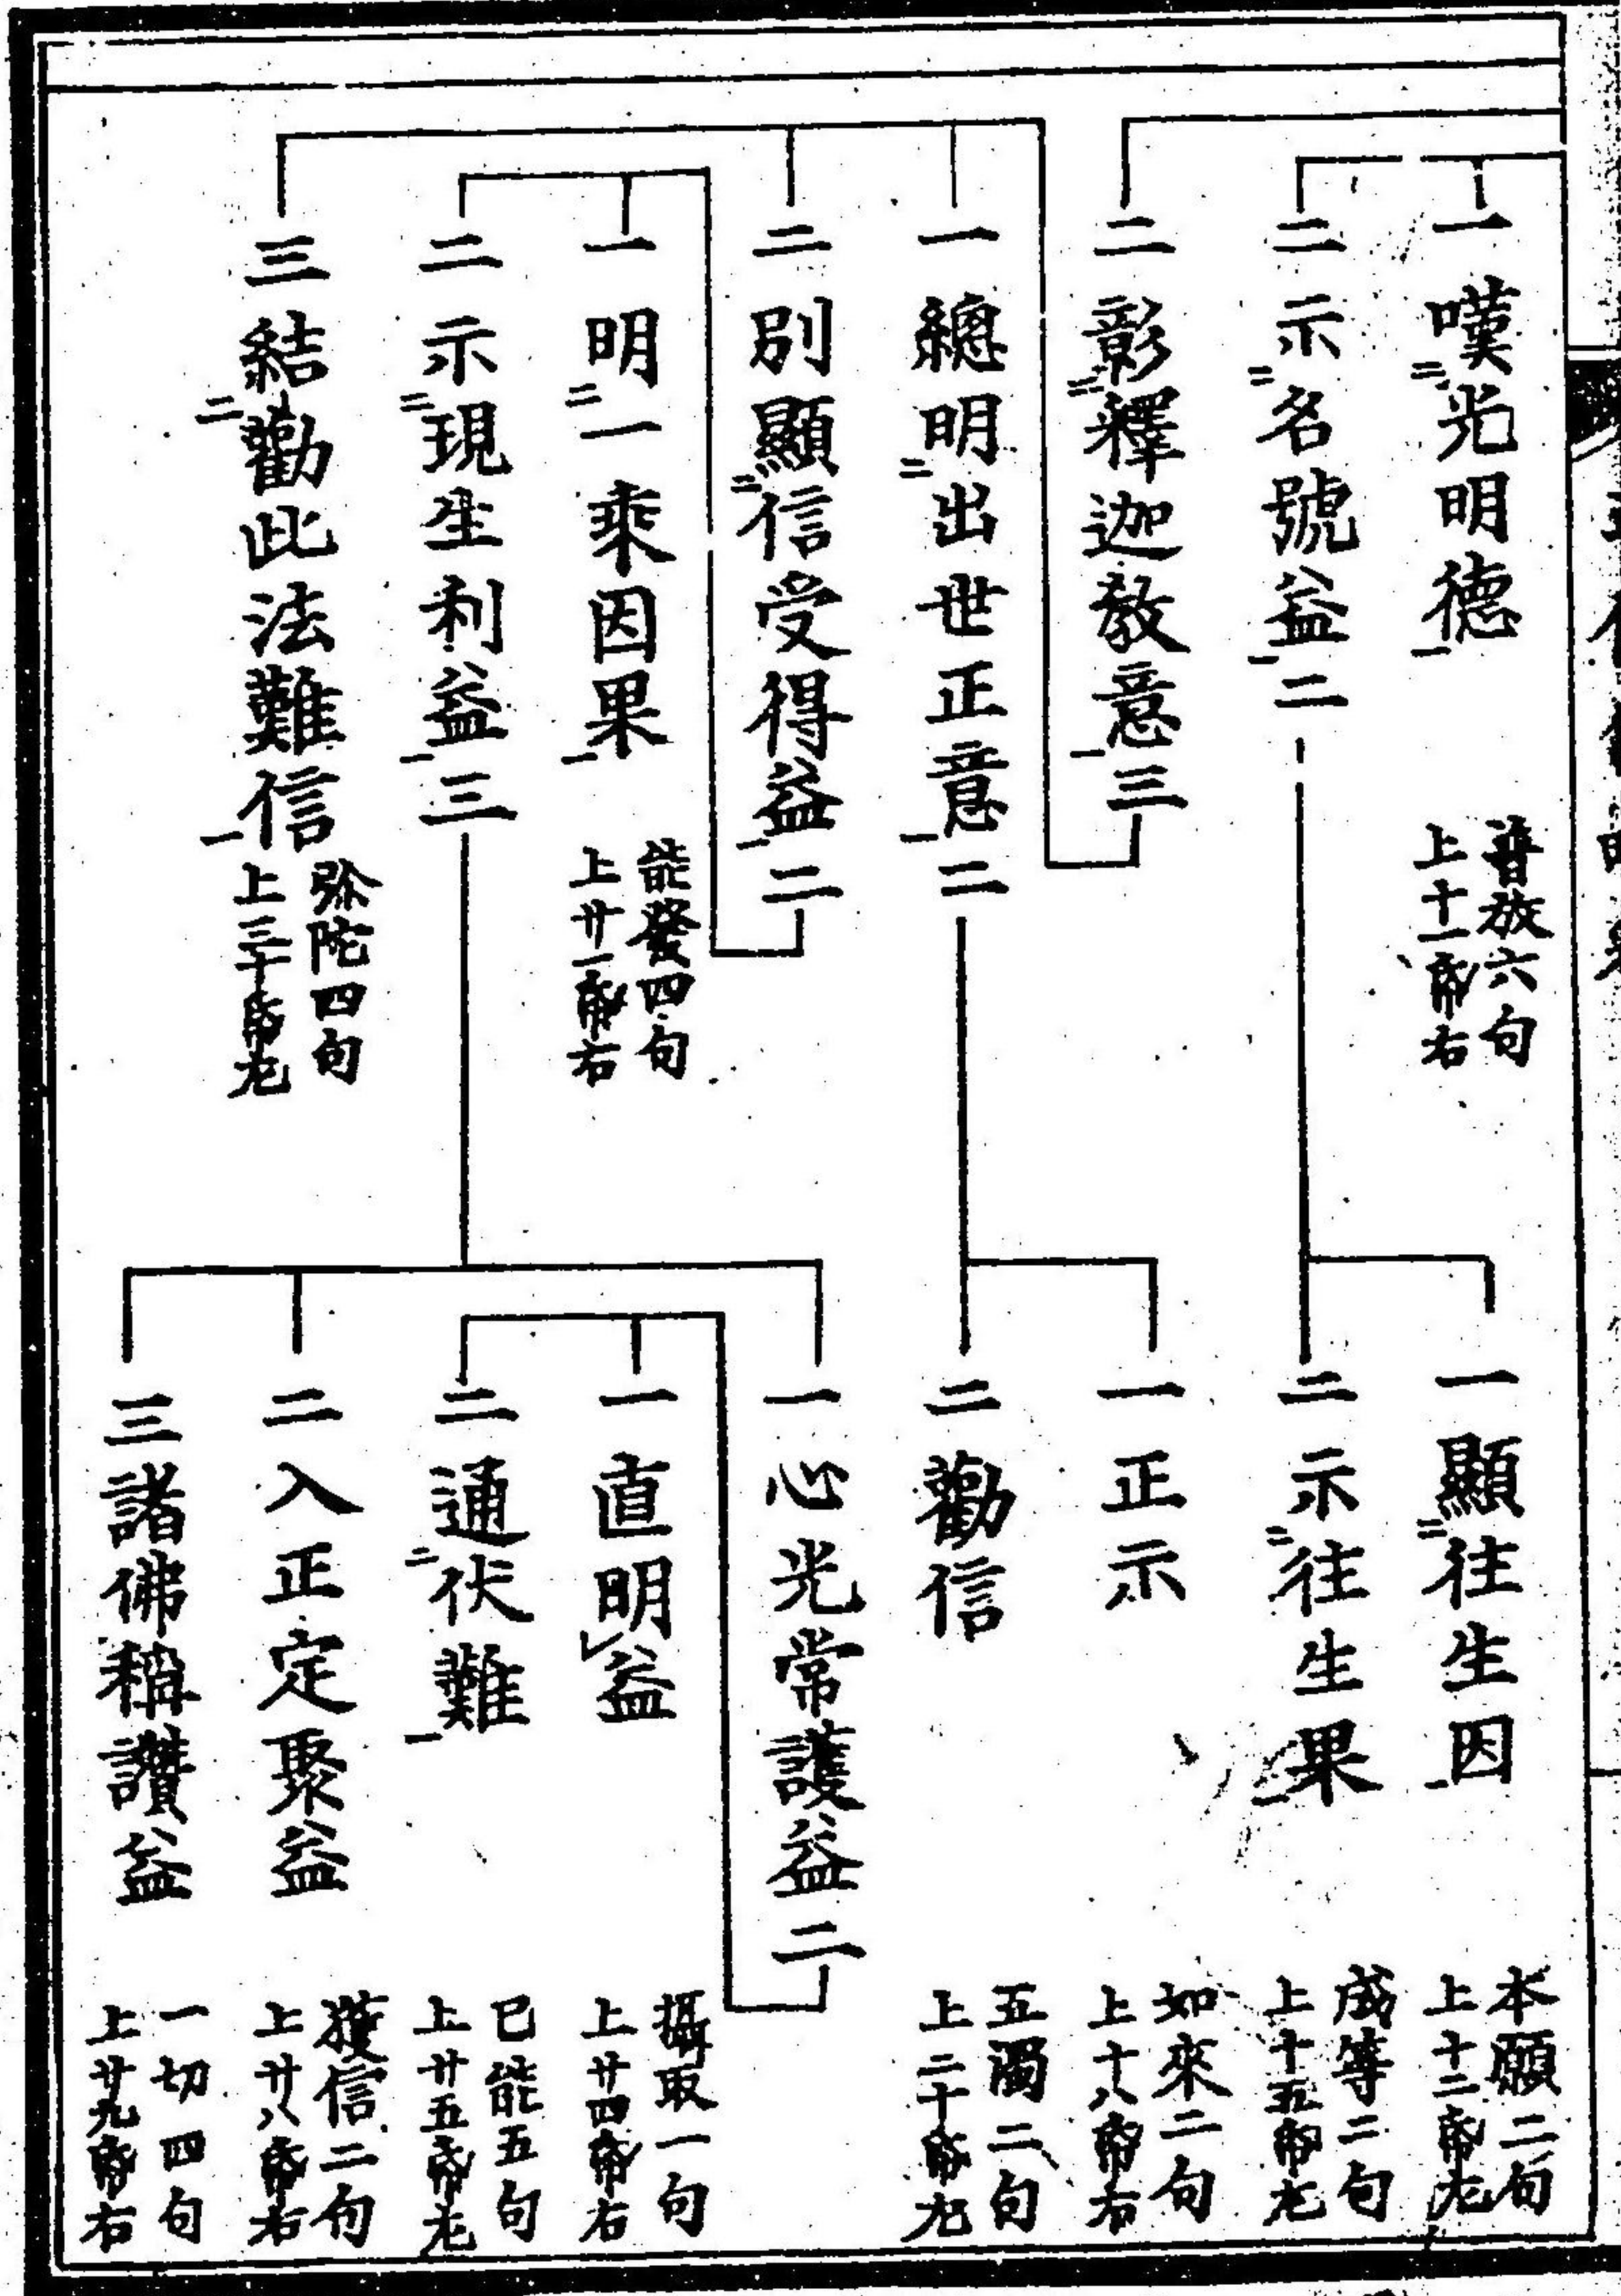 一嘆光明德
普放六句
上十一帋右
二示名號益二
一顯往生因
本願二句
上十二帋左
二示往生果
成等二句
上十五帋左
二彰釋迦教意三
一總明出世正意二
一正示
如來二句
上十八帋右
二勸信
五濁二句
上二十帋左
二別顯信受得益二
一明一乘因果
能發四句
上廿一帋右
二示現生利益三
一心光常護益二
一直明益
攝取一句
上廿四帋右
二通伏難
已能五句
上廿五帋左
二入正定聚益
獲信二句
上廿八帋右
三諸佛稱讚益
一切四句
上廿九帋右
三結勸此法難信
弥陀四句
上三十帋左